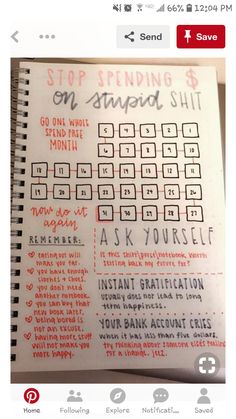 66% 12:04 PM
Send
Save
STOP SPENDING $
on stupid SHIT
GO ONE WHOLE
SPEND FREE
MONTH
5 4 3 2 1
6 7 8 9 10
18 17 16 15 14 13 12 11
19 20 21 22 23 24 25 26
31 30 29 28 27
now do it
again
REMEMBER:
eating out will
make you fat.
you have enough
clothes + shoes.
you don't need
another notebook.
you can buy that
new book later.
being bored is
not an excuse.
having more stuff
will not make you
more happy.
ASK YOURSELF
Is this shirt/purse/notebook worth
setting back my future for?
INSTANT GRATIFICATION
usually does not lead to long
term happiness.
YOUR BANK ACCOUNT CRIES
when it has less than five dollars.
try thinking about someone else's feelings
for a change, jeez.
Home
Following
Explore
Notificati...
Saved